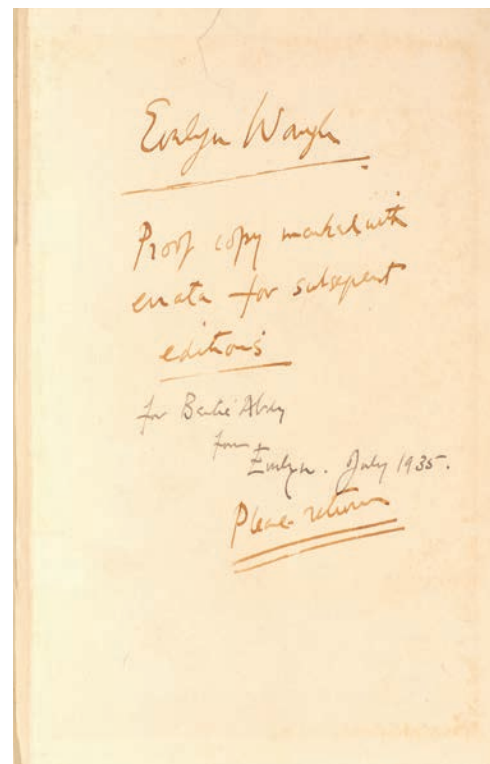 Evelyn Waugh
Proof copy marked with
errata for subsequent
editions
for Bertie Abdy
from
Evelyn. July 1935.
Please return